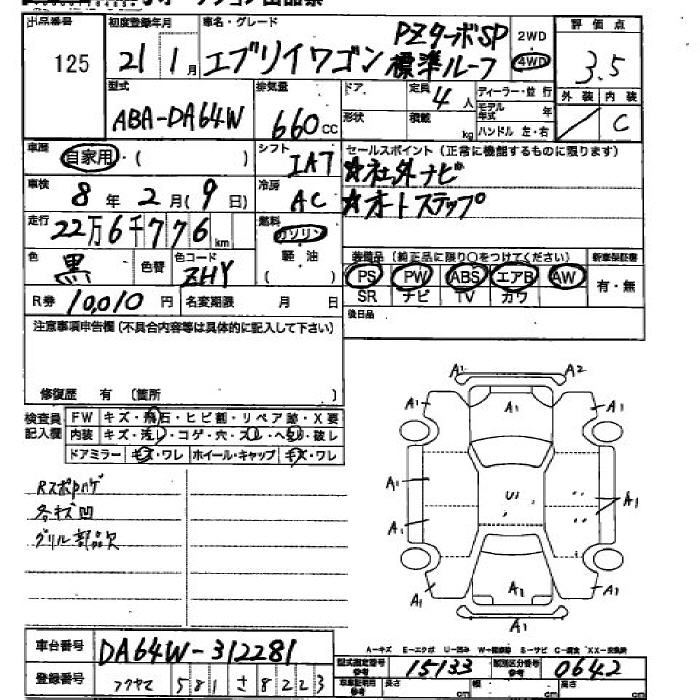 出品番号 初度登録年月 車名・グレード 評価点
125 21 1月 エブリイワゴン PZターボSP 標準ルーフ 2WD 4WD 3.5
型式 排気量 ドア 定員 ディーラー・並行 外装 内装
ABA-DA64W 660cc 4人 モデル年式 年 C
形状 積載 kg ハンドル 左・右
車歴 自家用・( ) シフト IAT セールスポイント(正常に機能するものに限ります)
車検 8年2月(9日) 冷房 AC ☆社外ナビ
☆オートステップ
走行 22万6千776km 燃料 ガソリン
色 黒 色替 色コード ZHY 軽油 ( )
装備品(純正品に限り〇をつけてください) 新車保証書
PS PW ABS エアB AW 有・無
SR ナビ TV カワ
R券 10,010円 名変期限 月 日 後日品
注意事項申告欄(不具合内容等は具体的に記入して下さい)
修復歴 有 〔箇所 〕
検査員記入欄 FW キズ・飛石・ヒビ割・リペア跡・X要
内装 キズ・汚レ・コゲ・穴・スレ・ヘタリ・破レ
ドアミラー キズ・ワレ ホイール・キャップ キズ・ワレ
Rスポハゲ
各キズ凹
グリル部品欠
A1 A2
A1 A1 A1
A1 U1 A1
A1
A1 A1 A1
A1
車台番号 DA64W-312281
A-キズ E-エクボ U-凹み S-サビ
型式指定番号 15133 類別区分番号 0642
登録番号 フクヤマ 581 さ 8223
長さ cm 幅 cm 高さ cm